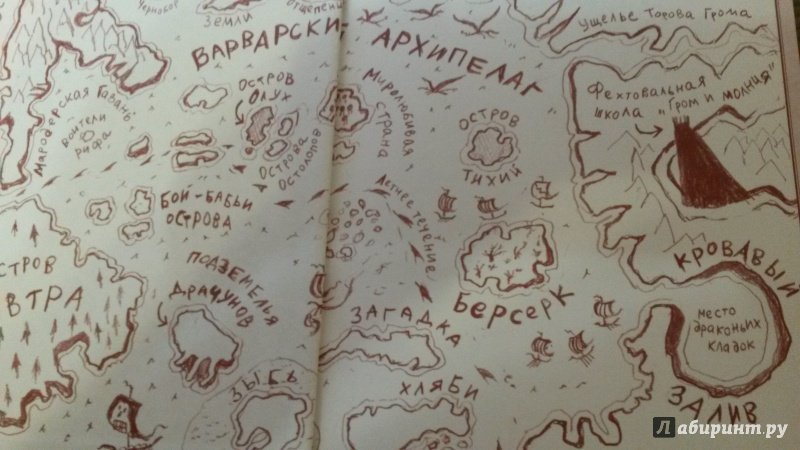 Чернобор
Земли
Отщепен
Ущелье Торова Грома
ВАРВАРСКИ
АРХИПЕЛАГ
Фехтовальная
школа „Гром и молния"
Мародёрская Гавань
воители
рифа
ОСТРОВ
ОЛУХ
ОСТРОВА
ОСТОЛОПОВ
Миролюбивая
страна
ОСТРОВ
ТИХИЙ
БОЙ-БАБЬИ
ОСТРОВА
Летнее течение
СТРОВ
ВТРА
ПОДЗЕМЕЛЬЯ
ДРАЧУНОВ
БЕРСЕРК
КРОВАВЫЙ
ЗАЛИВ
место
драконьих
кладок
ЗАГАДКА
ЗЫБЬ
ХЛЯБИ
Лабиринт.ру